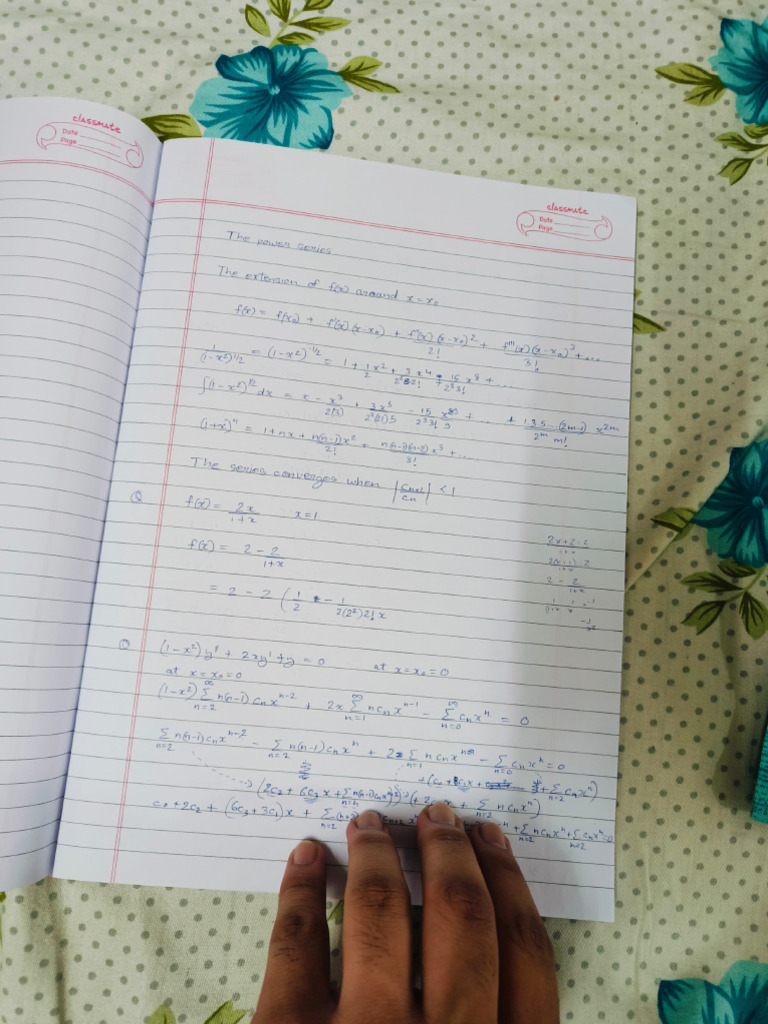 classmate
Date
Page
classmate
Date
Page
The power series
The extension of f(x) around x = x₀
f(x) = f(x₀) + f'(x)(x-x₀) + f''(x)(x-x₀)²/2! + f'''(x)(x-x₀)³/3! + ....
1/(1-x²)^1/2 = (1-x²)^-1/2 = 1 + 1/2 x² + 3x⁴/2²2! + 15 x⁸/2³3! + ...
∫(1-x²)^1/2 dx = x - x³/2(3) + 3x⁵/2²(2!)5 - 15 x⁸/2³3! 9 + ... + 1.3.5...(2m-1) x^2m/2^m m!
(1+x)ⁿ = 1 + nx + n(n-1)x²/2! + n(n-1)(n-2)x³/3! + ....
The series converges when | / cn | < 1
Q f(x) = 2x/1+x x = 1
2x+2-2/1+x
f(x) = 2 - 2/1+x
2 - 2/1+x
= 2 - 2 (1/2 - 1/2(2²)2! x
Q (1-x²)y'' + 2xy' + y = 0 at x = x₀ = 0
at x = x₀ = 0
(1-x²) ∞Σn=2 n(n-1) cn x^n-2 + 2x ∞Σn=1 n cn x^n-1 - ∞Σn=0 cn xⁿ = 0
Σn=2 n(n-1) cn x^n-2 - Σn=2 n(n-1) cn xⁿ + 2 Σn=1 n cn x - Σn=0 cn xⁿ = 0
+ Σn=2 cn xⁿ)
(2c₂ + 6c₃x + Σn=4 n(n-1) cn x + Σn=2 n cn xⁿ)
c₀ + 2c₂ + (6c₃ + 3c₁)x + Σn=2 + Σn=2 n cn xⁿ + Σn=2 cn xⁿ = 0